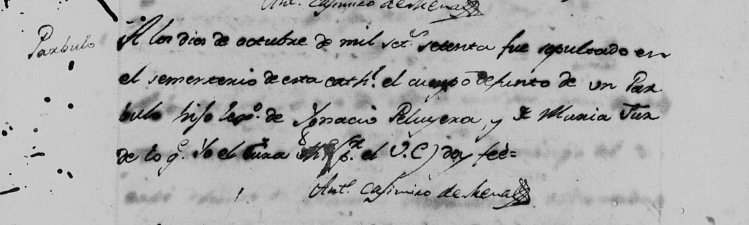 Ant. Casimiro de Mena
Parbulo
A los dies de octubre de mil set.s setenta fue sepultado en
el sementerio de esta cath.l el cuerpo defunto de un Par
bulo hijo leg.o de Ygnacio Peluyera, y de Maria
de lo q.e Yo el Cura el V.C) doy feè=
Ant. Casimiro de Mena